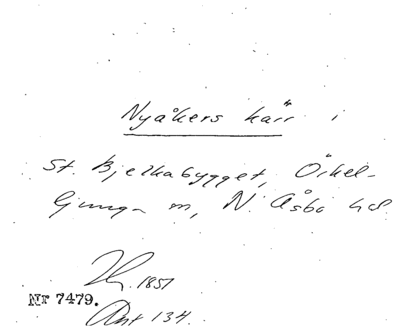 Nyåkers kärr i
St. Bjelkabygget, Örkel-
ljunga sn, N. Åsbo hd.
1851
Nr 7479.
Ant 134.